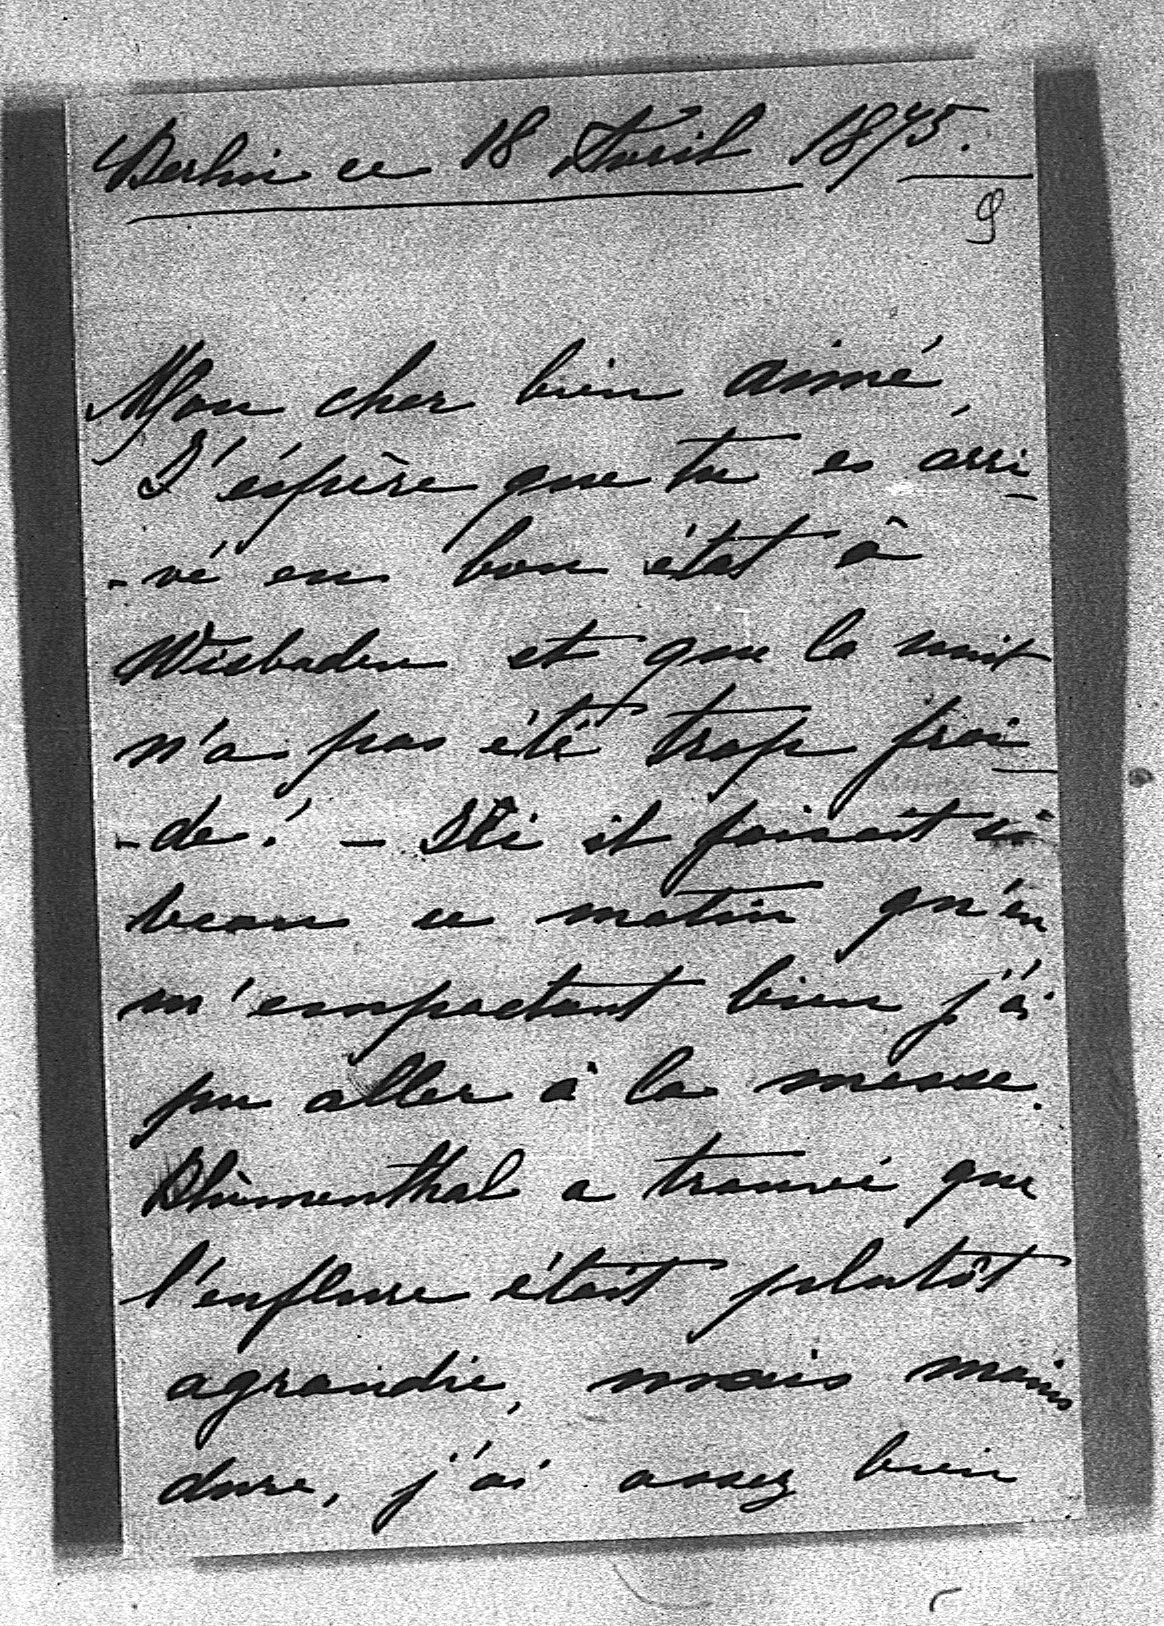 Berlin ce 18 Avril 1875.
9
Mon cher bien aimé,
J'éspère que tu es arri-
-vé en bon état à
Wisbaden et que la nuit
n'a pas été trop froi-
-de! - Ici il faisait si
beau ce matin qu'en
m'empactant bien j'ai
pu aller à la messe.
Blumenthal a trouvé que
l'enflure était plutôt
agrandie, mais moins
dure, j'ai assez bien